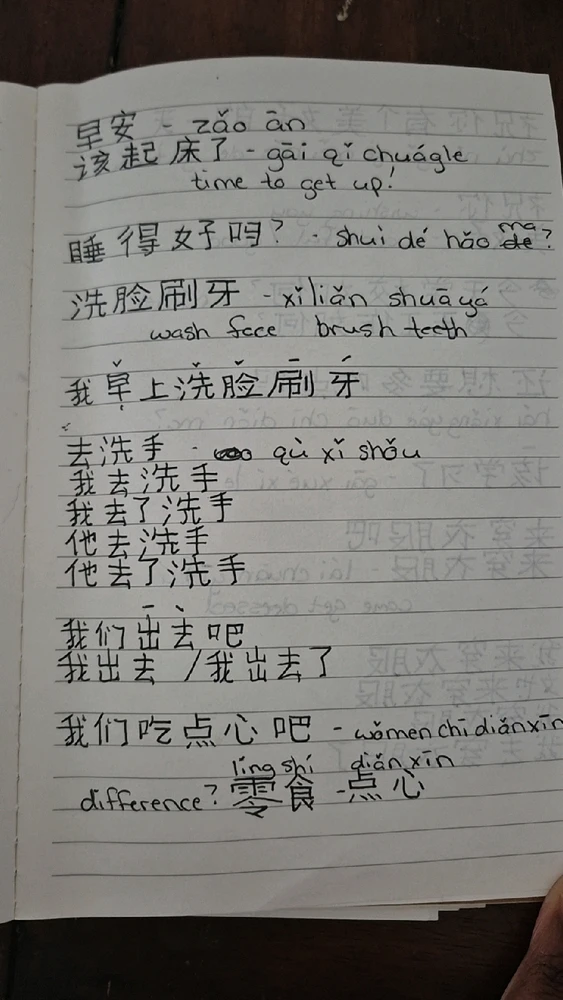 早安 - zǎo ān
该起床了 - gāi qǐ chuágle
time to get up!
睡得好吗? - shuì dé hǎo ma?
洗脸刷牙 - xǐ liǎn shuā yá
wash face brush teeth
我早上洗脸刷牙
去洗手 - qù xǐ shǒu
我去洗手
我去了洗手
他去洗手
他去了洗手
我们出去吧
我出去 / 我出去了
我们吃点心吧 - wǒmen chī diǎnxīn
líng shí diǎn xīn
difference? 零食 - 点心